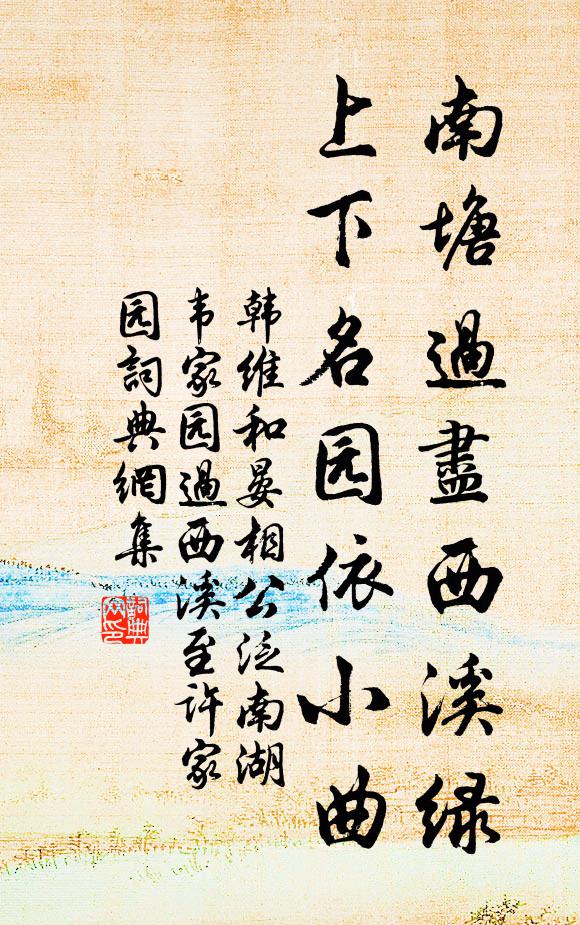 南塘過盡西溪緑
上下名园依小曲
韩维和晏相公泛南湖
韦家园過西溪至许家
园詞典網集
詞典